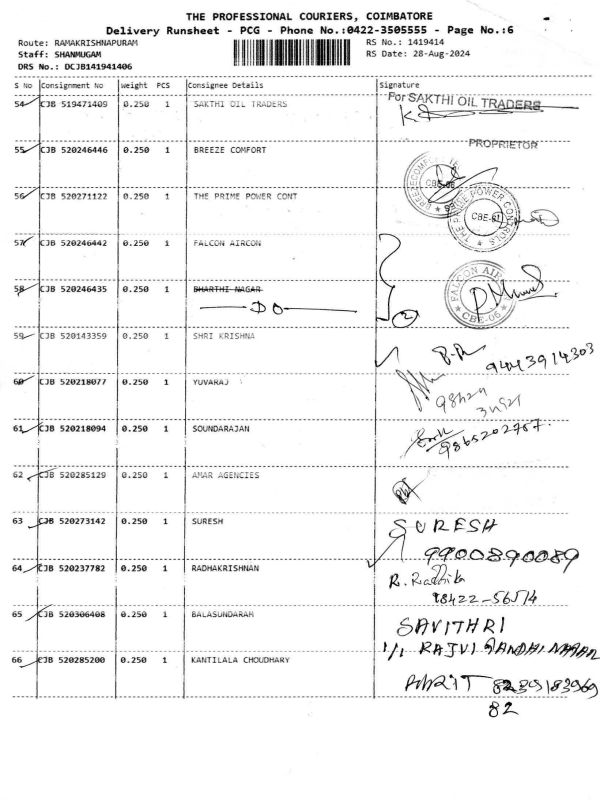 THE PROFESSIONAL COURIERS, COIMBATORE
Delivery Runsheet - PCG - Phone No.:0422-3505555 - Page No.:6
Route: RAMAKRISHNAPURAM RS No.: 1419414
Staff: SHANMUGAM RS Date: 28-Aug-2024
DRS No.: DCJB141941406
S No Consignment No Weight PCS Consignee Details Signature
54 CJB 519471409 0.250 1 SAKTHI OIL TRADERS For SAKTHI OIL TRADERS
PROPRIETOR
55 CJB 520246446 0.250 1 BREEZE COMFORT CBE-06
56 CJB 520271122 0.250 1 THE PRIME POWER CONT THE PRIME POWER CONTROLS CBE-6
57 CJB 520246442 0.250 1 FALCON AIRCON
58 CJB 520246435 0.250 1 BHARTHI NAGAR FALCON AIR CBE-06
DO 2
59 CJB 520143359 0.250 1 SHRI KRISHNA 9443914303
60 CJB 520218077 0.250 1 YUVARAJ
61 CJB 520218094 0.250 1 SOUNDARAJAN 9865202757.
62 CJB 520285129 0.250 1 AMAR AGENCIES
63 CJB 520273142 0.250 1 SURESH SURESH
9900890089
64 CJB 520237782 0.250 1 RADHAKRISHNAN R. Radhika
98422-56514
65 CJB 520306408 0.250 1 BALASUNDARAM SAVITHRI
1/1 RAJVI GANDHI NAGAR
66 CJB 520285200 0.250 1 KANTILALA CHOUDHARY AMRIT
82